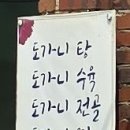 도가니 탕
도가니 수육
도가니 전골